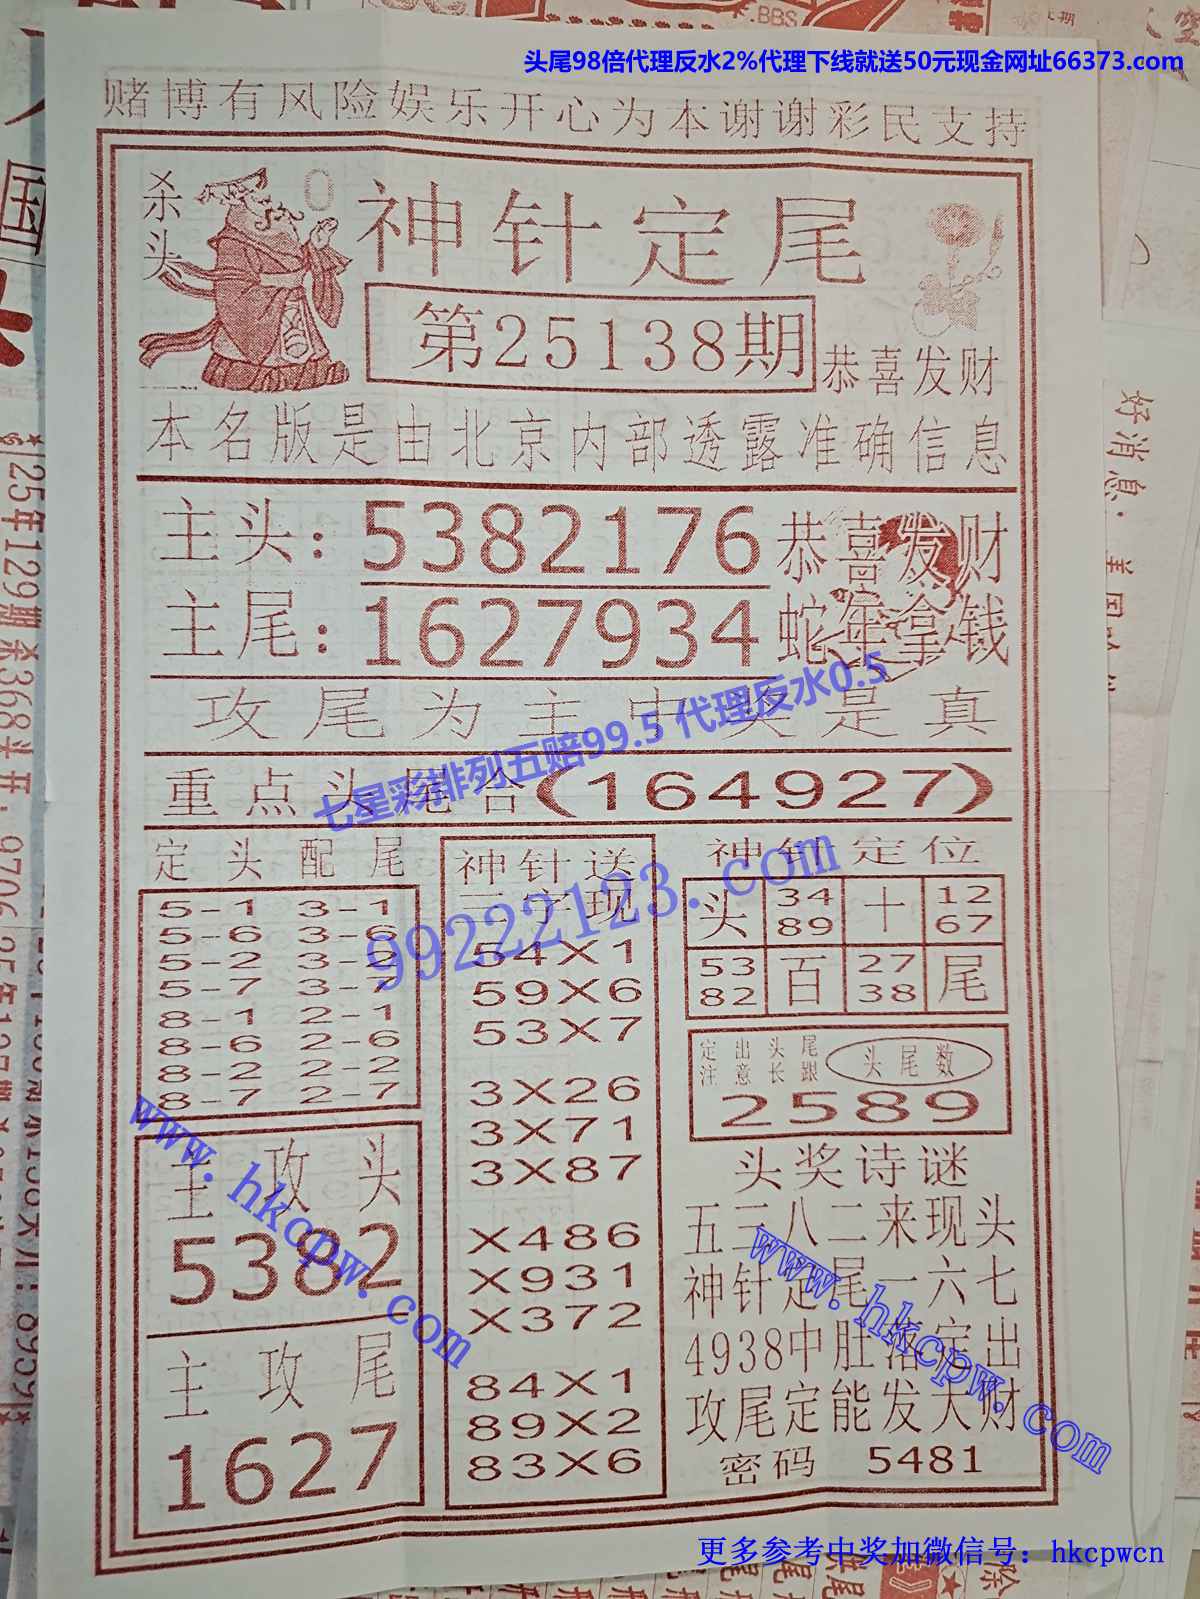 头尾98倍代理反水2%代理下线就送50元现金网址66373.com
赌博有风险娱乐开心为本谢谢彩民支持
杀头
0
神针定尾
第25138期
恭喜发财
本名版是由北京内部透露准确信息
主头：5382176 恭喜发财
主尾：1627934 蛇年拿钱
攻尾为主中奖是真
七星彩排列五赔99.5 代理反水0.5
重点头尾合(164927)
99222123.com
定头配尾
5-1 3-1
5-6 3-6
5-2 3-2
5-7 3-7
8-1 2-1
8-6 2-6
8-2 2-2
8-7 2-7
www.hkcpw.com
主攻头
5382
主攻尾
1627
神针送
三字现
54X1
59X6
53X7
3X26
3X71
3X87
X486
X931
X372
84X1
89X2
83X6
神针定位
头 34 十 12
89 67
53 百 27 尾
82 38
定出头尾
注意长跟
头尾数
2589
头奖诗谜
五三八二来现头
神针定尾一六七
4938中肚落定出
攻尾定能发大财
www.hkcpw.com
密码 5481
更多参考中奖加微信号：hkcpwcn
好消息.
*25年129期杀368头开:9706
国
F.BBS